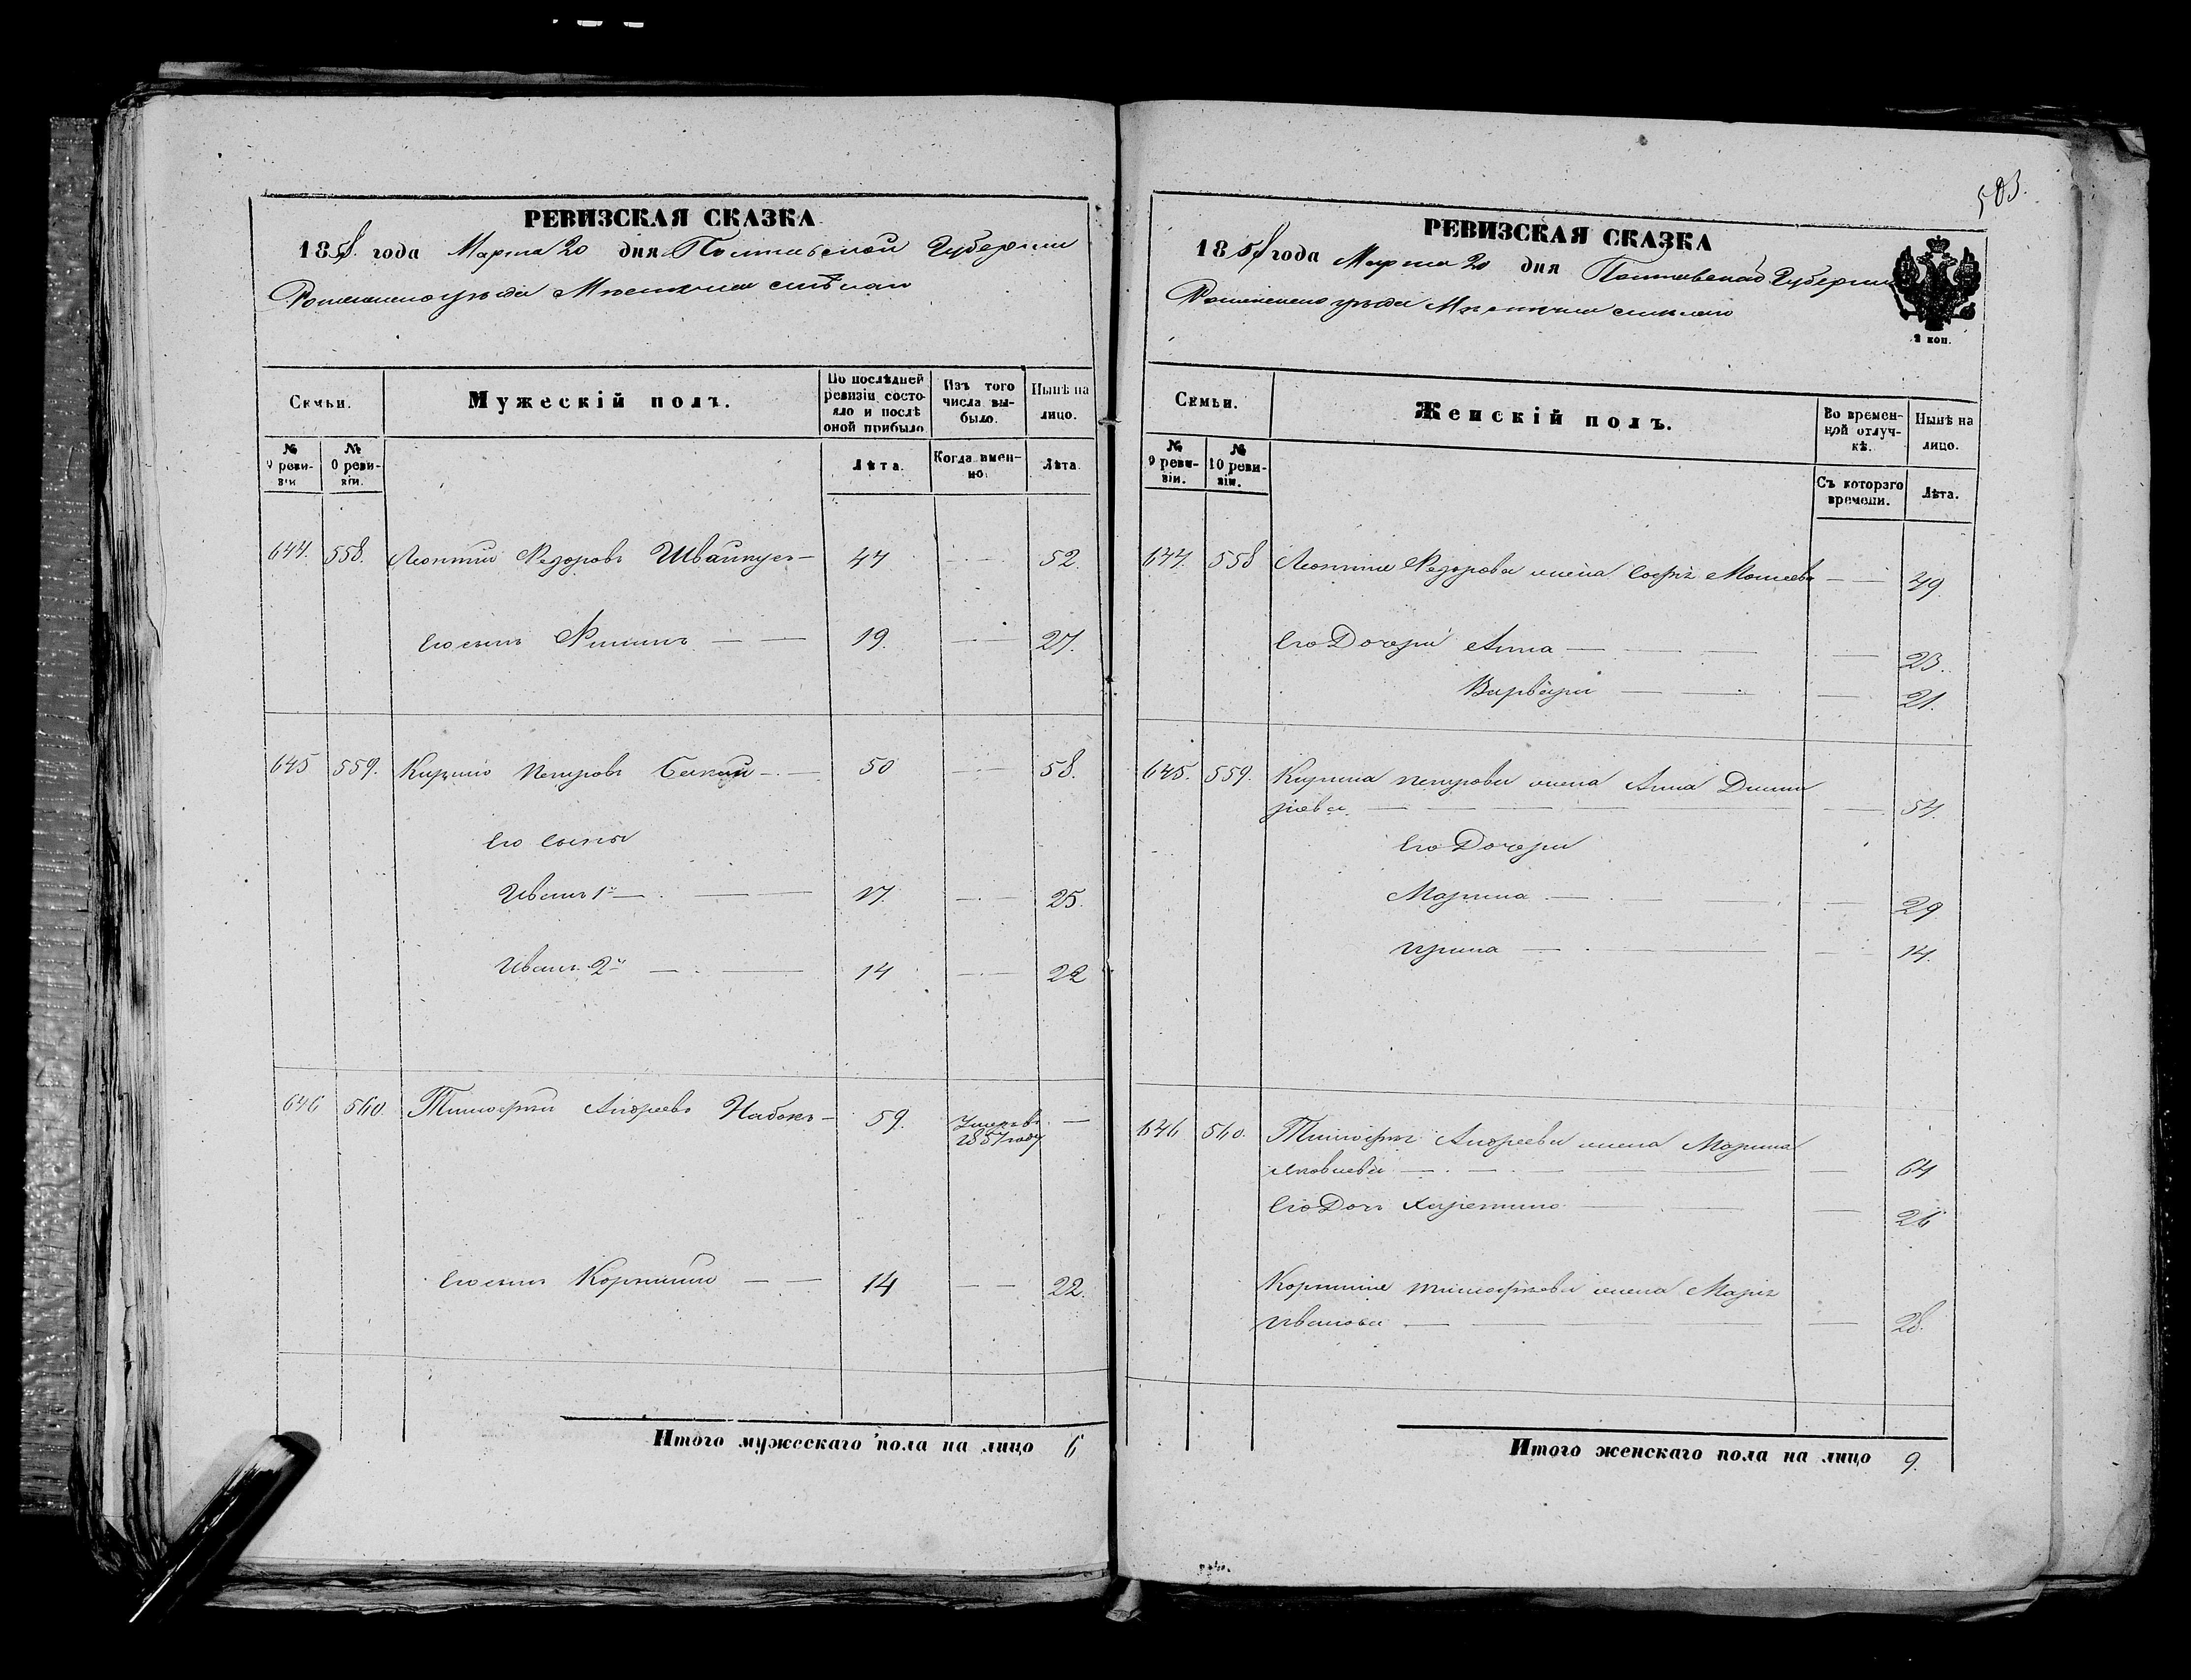 РЕВИЗСКАЯ СКАЗКА
1858 года Марта 20 дня Полтавской Губернии
Роменского уезда Местечка
Семьи.
Мужескій полъ.
По послѣдней ревизіи состояло и послѣ оной прибыло
Изъ того числа выбыло.
Нынѣ на лицо.
№ 9 ревизіи
№ 10 ревизіи.
Лѣта.
Когда именно.
Лѣта.
644. 558. Леонтій Федоровъ 44 52.
Его сынъ 19. 27.
645 559. Кирило Петровъ 50 58.
Его сыны
Иванъ 1й 17. 25.
Иванъ 2й 14 22
646 560. Тимофей Андреевъ Набокъ 59. Умеръ въ 1857 году
Его сынъ Корнилій 14 22.
Итого мужескаго пола на лицо 6
503.
РЕВИЗСКАЯ СКАЗКА
1858 года Марта 20 дня Полтавской Губернии
Роменского уезда Местечка
2 коп.
Семьи.
Женскій полъ.
Во временной отлучкѣ.
Нынѣ на лицо.
№ 9 ревизіи.
№ 10 ревизіи.
Съ котораго времени.
Лѣта.
644. 558 Леонтія Федорова жена Софія Моисеева 49.
Его Дочери Анна 23.
Варвара 21.
645. 559. Кирила Петрова жена Анна Дмит
ріева 54.
Его Дочери
Марина 29
Ирина 14.
646 560. Тимофея Андреева жена Марина
Яковлева 64
Его Дочь 26
Корнилія Тимофеева жена Марія
Иванова 28.
Итого женскаго пола на лицо 9.